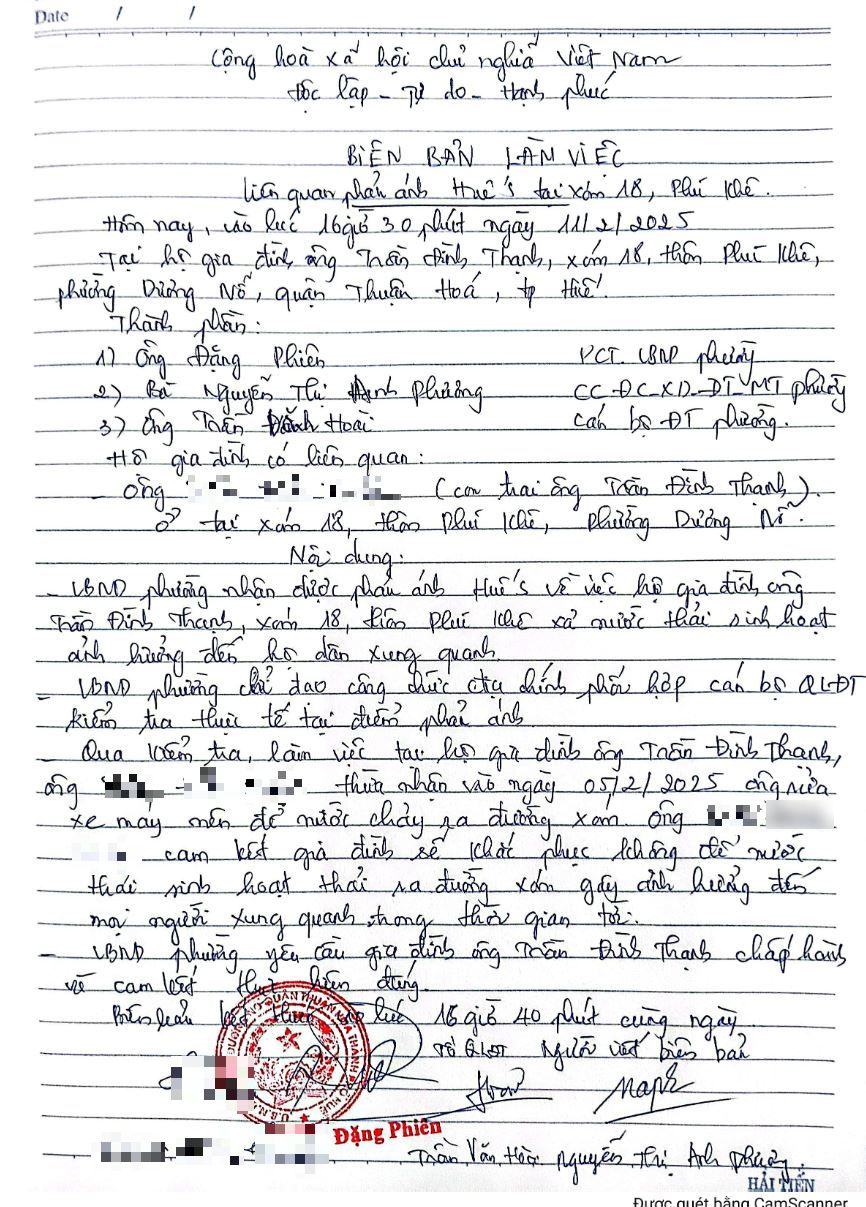 Date / /
Cộng hoà xã hội chủ nghĩa Việt Nam
Độc lập - Tự do - Hạnh phúc
BIÊN BẢN LÀM VIỆC
Liên quan phản ánh Huế's tại xóm 18, Phú Khê.
Hôm nay, vào lúc 16 giờ 30 phút ngày 11/2/2025
Tại hộ gia đình ông Trần Đình Thạnh, xóm 18, thôn Phú Khê,
phường Dương Nỗ, quận Thuận Hoá, tp Huế.
Thành phần:
1) Ông Đặng Phiên PCT. UBND phường
2) Bà Nguyễn Thị Anh Phương CC-ĐC-XD-ĐT-MT phường
3) Ông Trần Hoài Cán bộ ĐT phường.
Hộ gia đình có liên quan:
- Ông (con trai ông Trần Đình Thạnh).
Ở tại xóm 18, thôn Phú Khê, phường Dương Nỗ.
Nội dung:
- UBND phường nhận được phản ánh Huế's về việc hộ gia đình ông
Trần Đình Thạnh, xóm 18, thôn Phú Khê xả nước thải sinh hoạt
ảnh hưởng đến hộ dân xung quanh.
- UBND phường chỉ đạo công chức địa chính phối hợp cán bộ QLĐT
kiểm tra thực tế tại điểm phản ánh.
- Qua kiểm tra, làm việc tại hộ gia đình ông Trần Đình Thạnh,
ông thừa nhận vào ngày 05/2/2025 ông rửa
xe máy nên để nước chảy ra đường xóm. Ông
cam kết gia đình sẽ khắc phục không để nước
thải sinh hoạt thải ra đường xóm gây ảnh hưởng đến
mọi người xung quanh trong thời gian tới.
- UBND phường yêu cầu gia đình ông Trần Đình Thạnh chấp hành
về cam kết thực hiện đúng.
Biên bản kết thúc vào lúc 16 giờ 40 phút cùng ngày
Tổ QLĐT Người viết biên bản
Đặng Phiên
Trần Văn Hoài Nguyễn Thị Anh Phương
HẢI TIẾN
Được quét bằng CamScanner